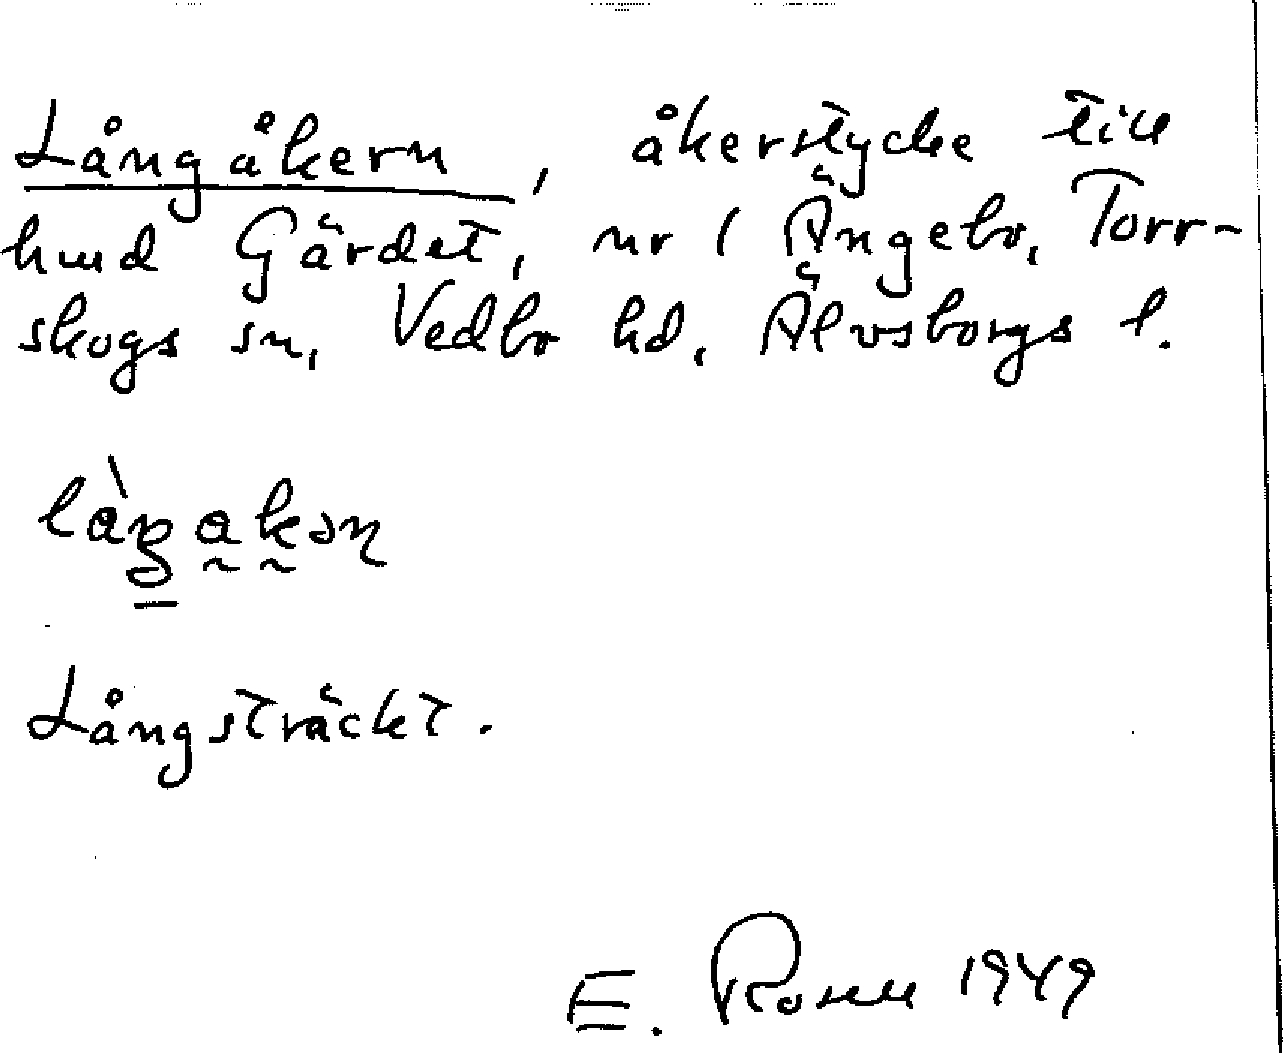 Långåkern, åkerstycke till
hmd Gärdet, nr 1 Ängebo, Torr-
skogs sn, Vedbo hd, Älvsborgs l.
Långsträckt.
E. Rosell 1949